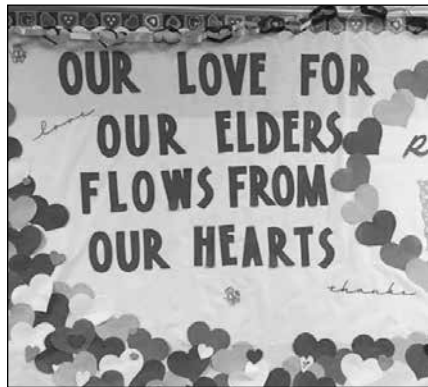 OUR LOVE FOR
love
OUR ELDERS
FLOWS FROM
OUR HEARTS
thanks